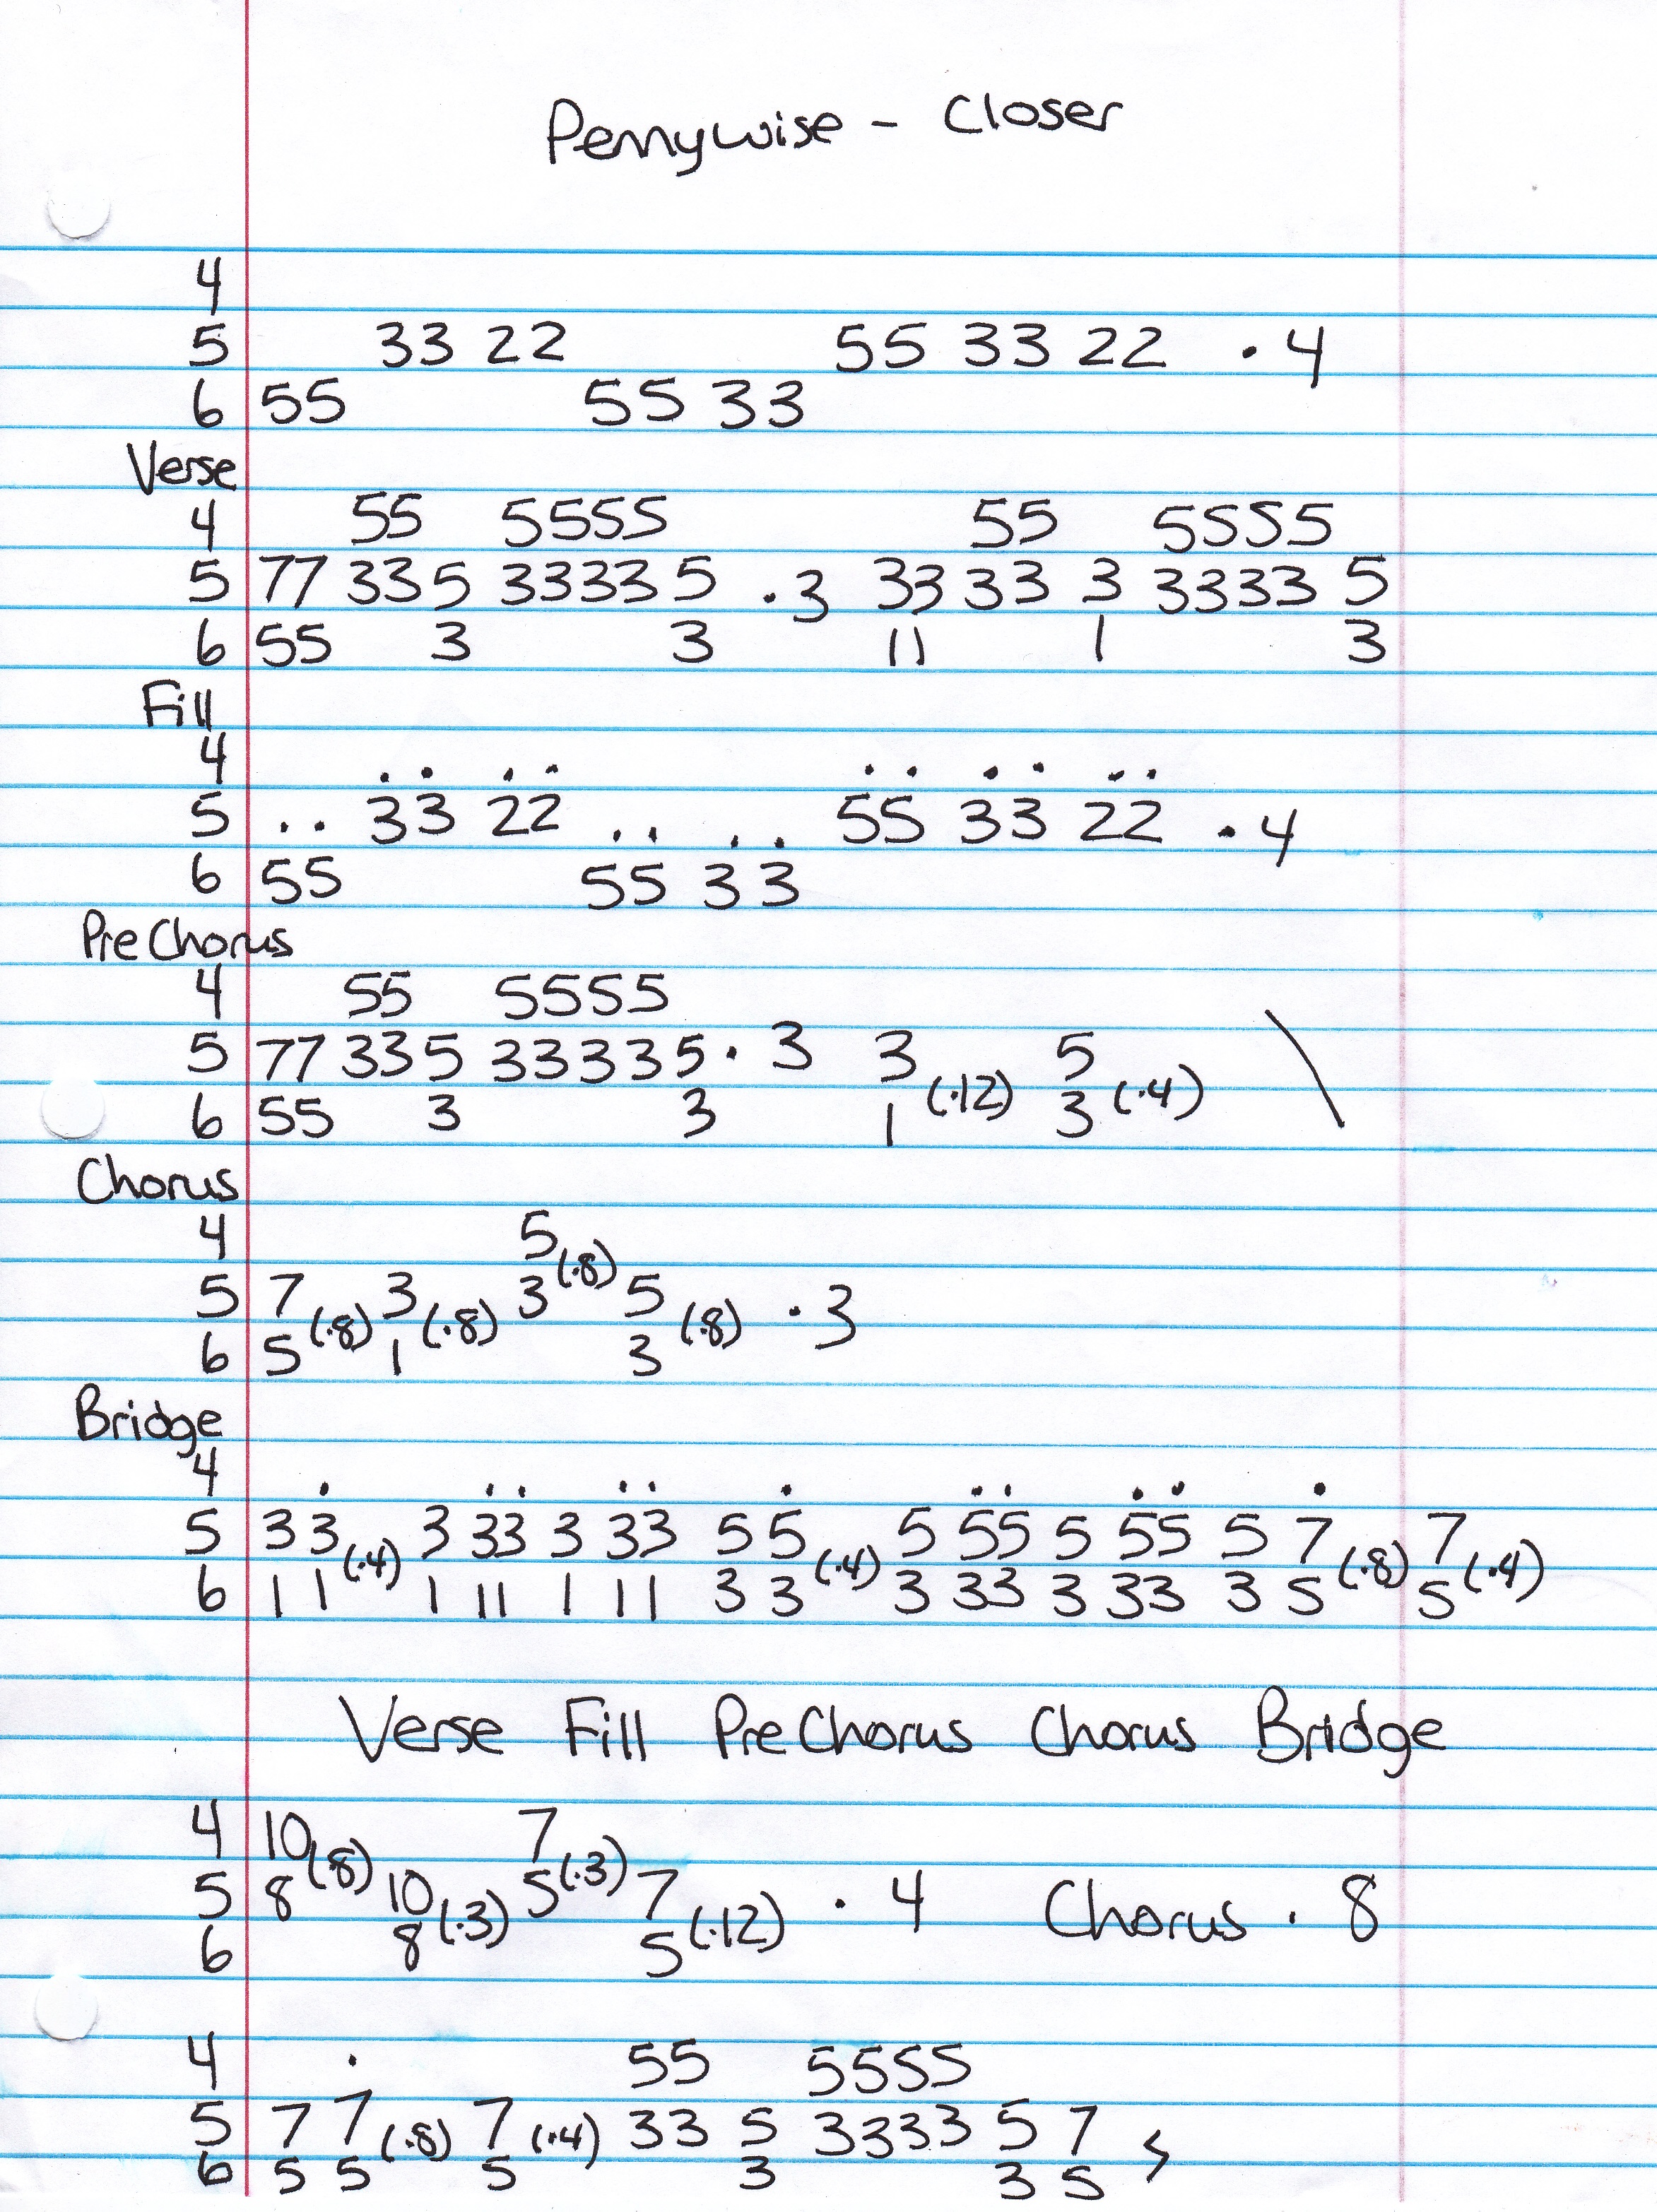 Pennywise - Closer
4
5 33 22 55 33 22 · 4
6 55 55 33
Verse
4 55 5555 55 5555
5 77 33 5 3333 5 · 3 33 33 3 3333 5
6 55 3 3 11 1 3
Fill
4 . . . . . . . . . .
5 . . 33 22 . . . . 55 33 22 · 4
6 55 55 33
PreChorus
4 55 5555
5 77 33 5 3333 5 · 3 3 5 \
6 55 3 3 1 (·12) 3 (·4)
Chorus
4 5 (·8)
5 7 (·8) 3 (·8) 3 5 (·8) · 3
6 5 1 3
Bridge
4 . . . . . . . . . . .
5 3 3 (·4) 3 33 3 33 5 5 (·4) 5 55 5 55 5 7 (·8) 7 (·4)
6 1 1 1 11 1 11 3 3 3 33 3 33 3 5 5
Verse Fill PreChorus Chorus Bridge
4 10 (·8) 7 (·3)
5 8 10 (·3) 5 7 (·12) · 4 Chorus · 8
6 8 5
4 . 55 5555
5 7 7 (·8) 7 (·4) 33 5 3333 5 7
6 5 5 5 3 3 5